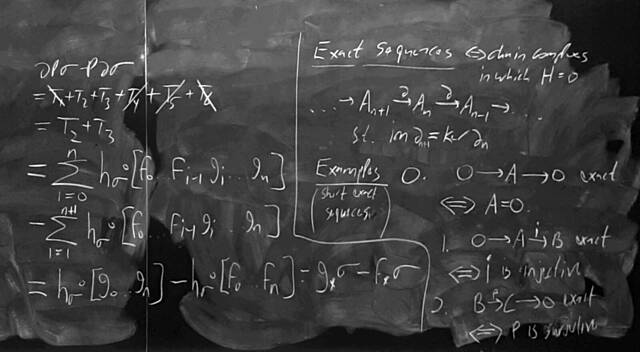 ∂Pσ - P∂σ
= T₁ + T₂ + T₃ + T₄ + T₅ + T₆
= T₂ + T₃
= Σ_{i=0}^{n} h_σ∘[f₀...f_{i-1} g_i...g_n]
- Σ_{i=1}^{n+1} h_σ∘[f₀...f_{i-1} g_i...g_n]
= h_σ∘[g₀...g_n] - h_σ∘[f₀...f_n] = g_*σ - f_*σ
Exact Sequences ⇔ chain complexes
in which H=0
... → A_{n+1} →^∂ A_n →^∂ A_{n-1} → ...
s.t. im ∂_{n+1} = ker ∂_n
Examples 0. 0→A→0 exact
short exact
sequences
⇔ A=0.
1. 0→A→^i B exact
⇔ i is injective
2. B→^p C→0 exact
⇔ P is surjective